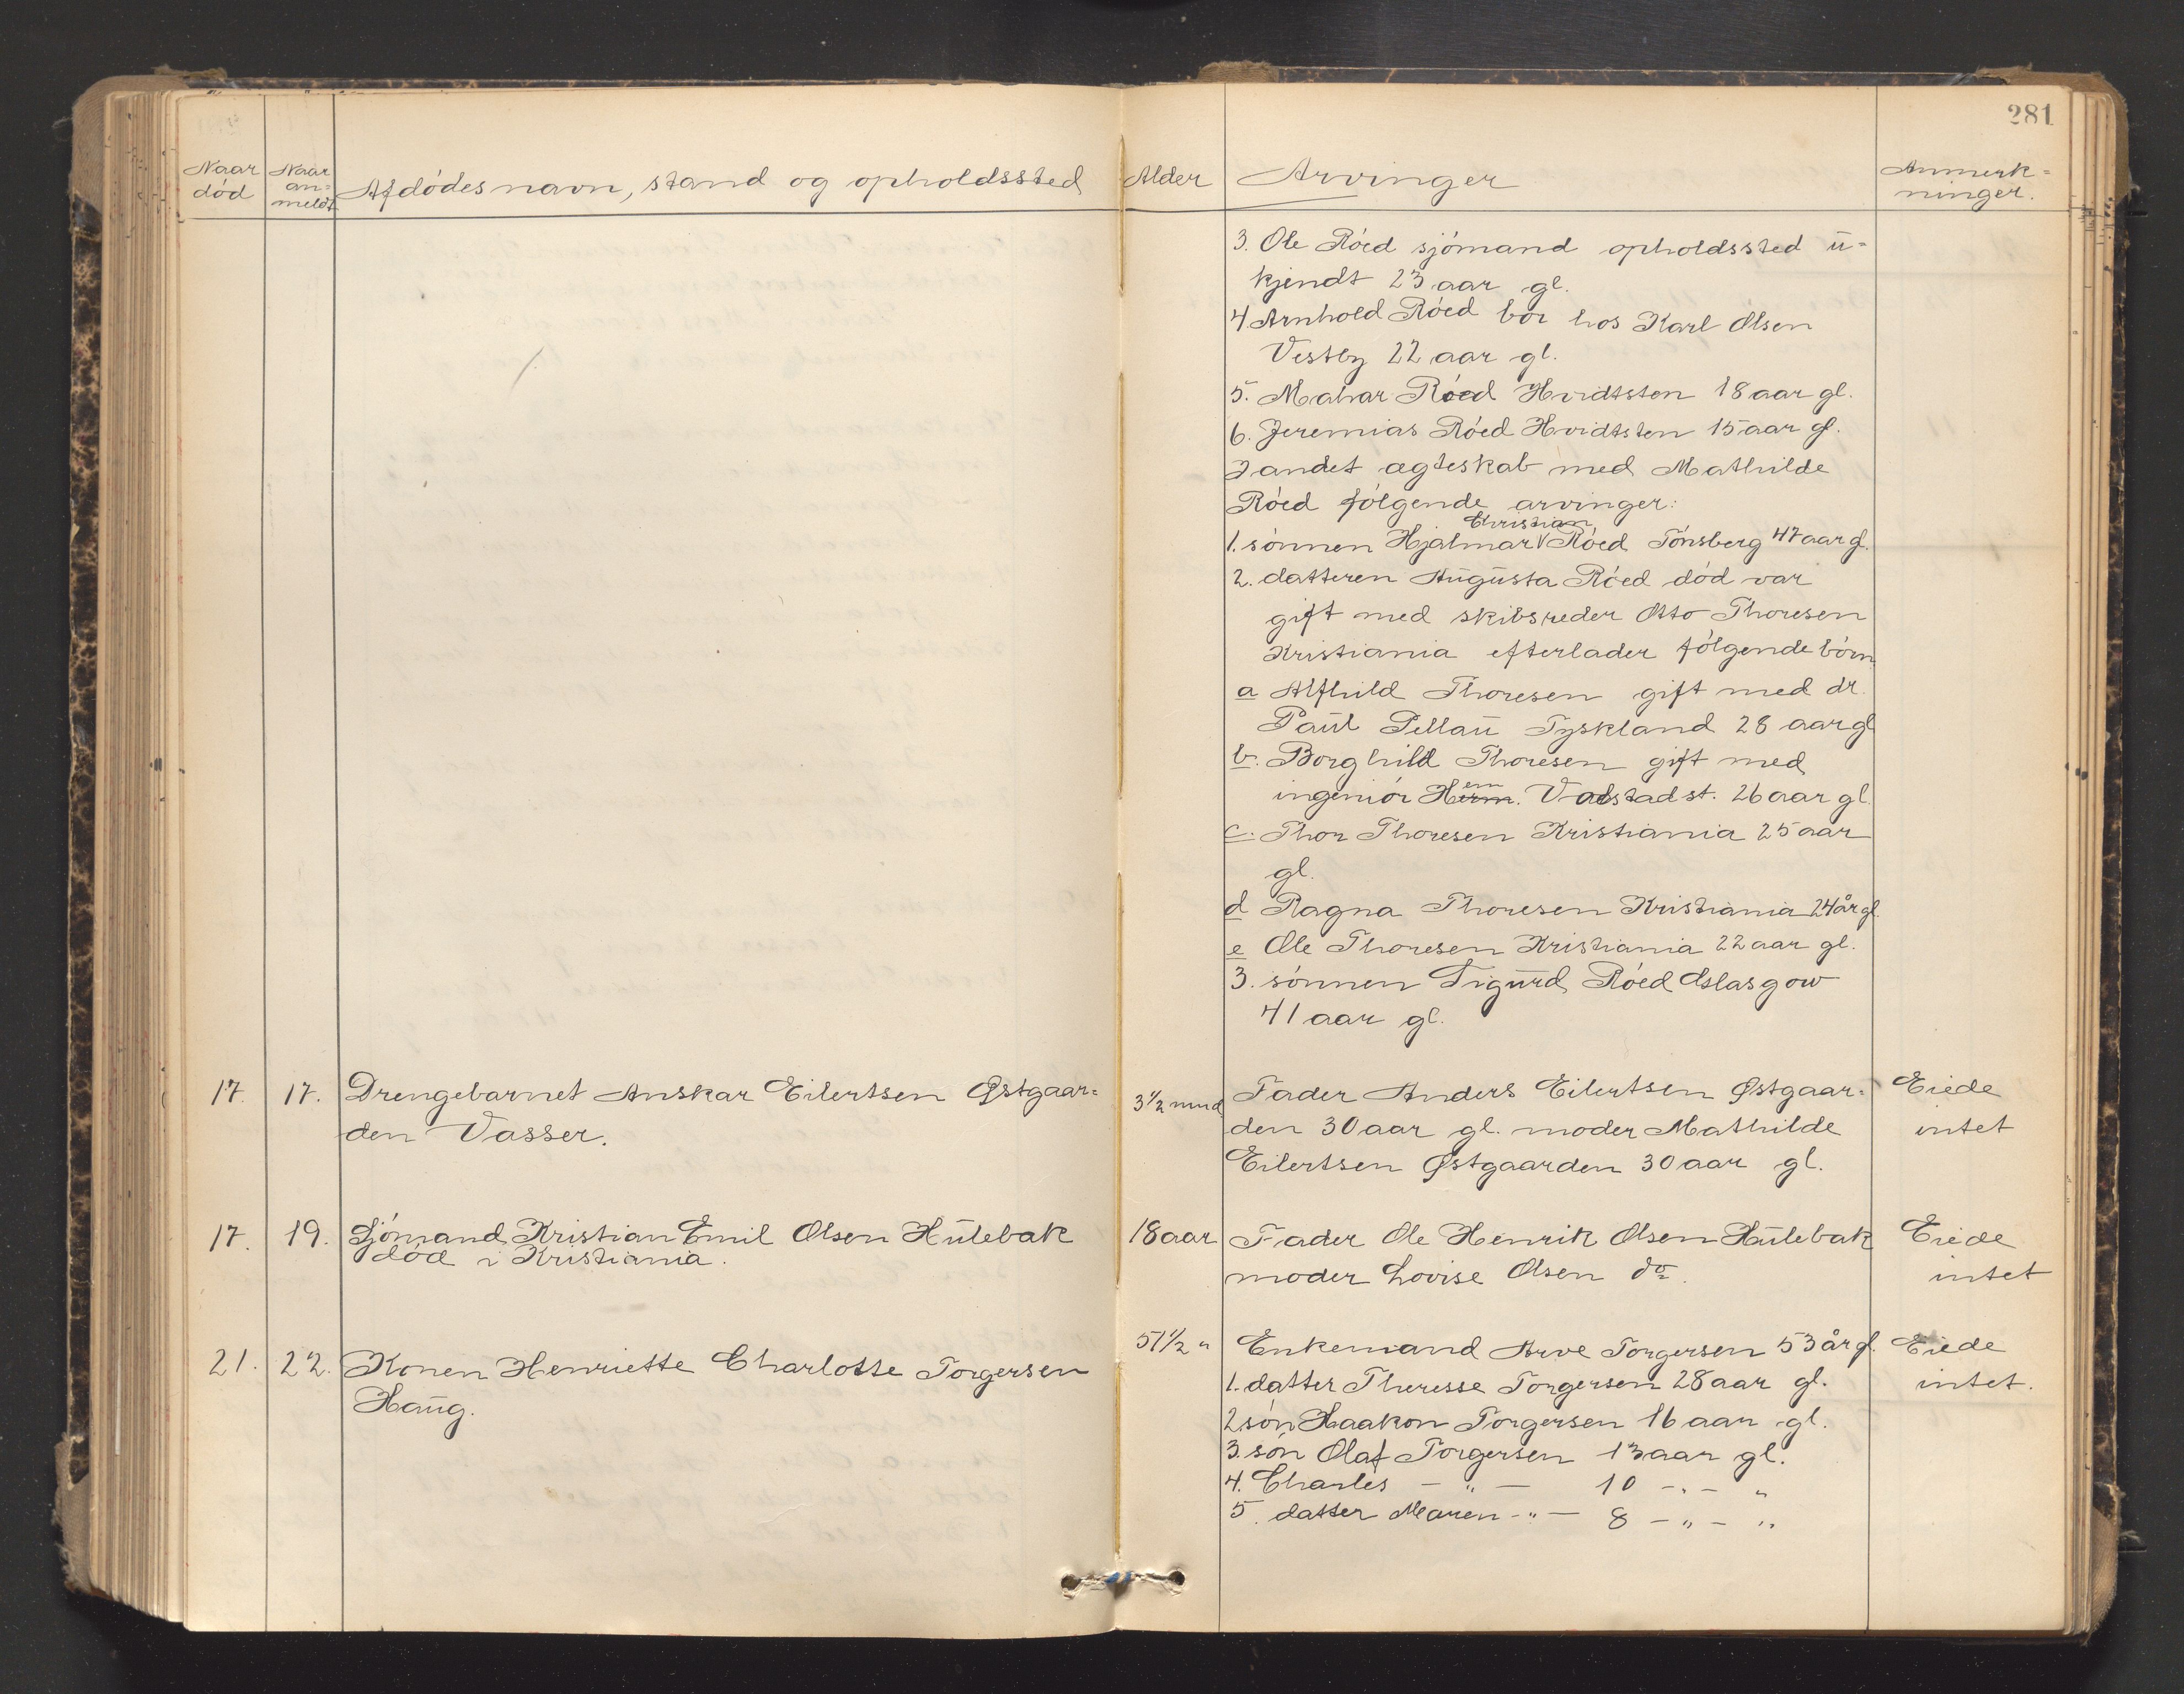 281
Naar død
Naar an=meldt
Afdødes navn, stand og opholdssted
Alder
Arvinger
Anmerk=ninger.
3. Ole Röed sjömand opholdssted u=
kjendt 23 aar gl.
4 Arnhold Röed bor hos Karl Olsen
Vestby 22 aar gl.
5. Röed Hvidtsten 18 aar gl.
6. Jeremias Röed Hvidtsten 15 aar gl.
I andet ægteskab med Mathilde
Röed fölgende arvinger:
Christian
1. sönnen Hjalmar √ Röed Tönsberg 47 aar gl.
2. datteren Augusta Röed död var
gift med skibsreder Otto Thoresen
Kristiania efterlader fölgende börn
a Alfhild Thoresen gift med dr.
Paul Pellau Tyskland 28 aar gl
b. Borghild Thoresen gift med
ingeniör st. 26 aar gl.
c. Thor Thoresen Kristiania 25 aar
gl.
d Ragna Thoresen Kristiania 24 år gl.
e Ole Thoresen Kristiania 22 aar gl.
3. sönnen Sigurd Röed Glasgow
41 aar gl.
17. 17. Drengebarnet Anskar Eilertsen Østgaar=
den Vasser.
3½ mnd
Fader Anders Eilertsen Østgaar=
den 30 aar gl. moder Mathilde
Eilertsen Østgaarden 30 aar gl.
Eiede
intet
17. 19. Sjömand Kristian Emil Olsen Hulebak
död i Kristiania.
18 aar
Fader Ole Henrik Olsen Hulebak
moder Lovise Olsen do.
Eiede
intet
21. 22. Konen Henriette Charlotte Torgersen
Haug.
51½ "
Enkemand Arve Torgersen 53 år gl.
1. datter Theresse Torgersen 28 aar gl.
2 sön Haakon Torgersen 16 aar gl.
3. sön Olaf Torgersen 13 aar gl.
4. Charles - " - 10 - " - "
5. datter Maren - " - 8 - " - "
Eiede
intet.